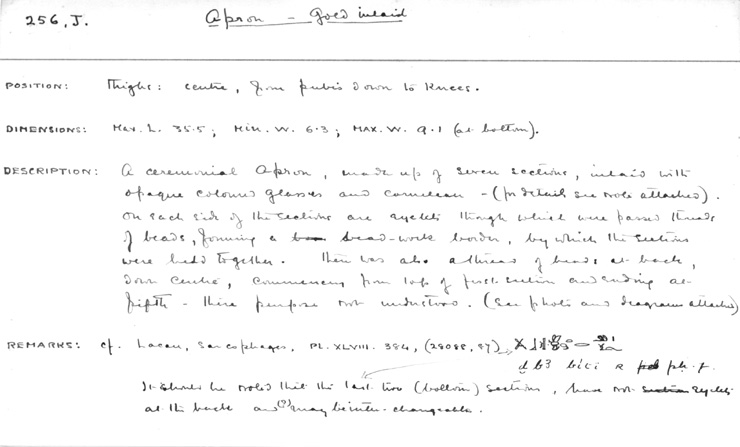 256, J.
Apron – Gold inlaid
POSITION: Thighs: centre, from pubis down to knees.
DIMENSIONS: Max. L. 35.5; Min. W. 6.3; MAX. W. 9.1 (at bottom).
DESCRIPTION: A ceremonial Apron, made up of seven sections, inlaid with
opaque coloured glasses and carnelian – (for details see note attached).
On each side of the sections are eyelets through which were passed threads
of beads, forming a bead-work border, by which the sections
were held together. There was also a thread of beads at back,
down centre, commencing from top of first section and ending at
fifth – purpose not understood. (See photo and diagram attached)
REMARKS: cf. Lacau, Sarcophages, PL. XLVIII. 384, (28088, 87)
db3
It should be noted that the last two (bottom) sections, have not eyelets
at the back and (?) may be inter-changeable.